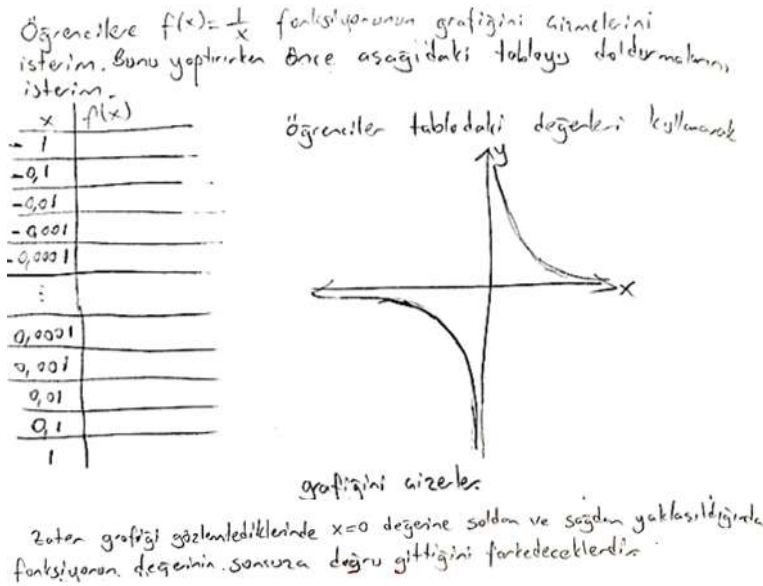 Öğrencilere f(x)= 1/x fonksiyonunun grafiğini çizmelerini
isterim. Bunu yaptırırken önce aşağıdaki tabloyu doldurmalarını
isterim.
x f(x)
- 1
-0,1
-0,01
-0,001
-0,0001
⋮
0,0001
0,001
0,01
0,1
1
Öğrenciler tablodaki değerleri kullanarak
y
x
grafiğini çizerler.
Zaten grafiği gözlemlediklerinde x=0 değerine soldan ve sağdan yaklaşıldığında
fonksiyonun değerinin sonsuza doğru gittiğini farkedeceklerdir.